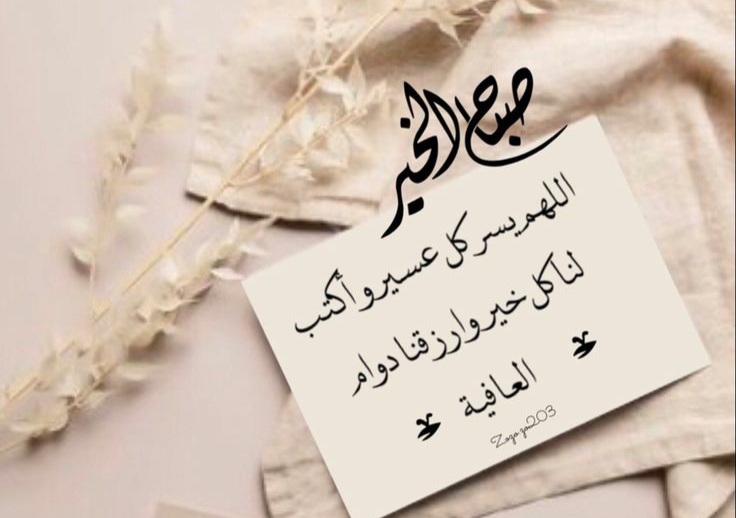 صباح الخير
اللهم يسر كل عسير وأكتب
لنا كل خير وارزقنا دوام
العافية
Zozo.zom203